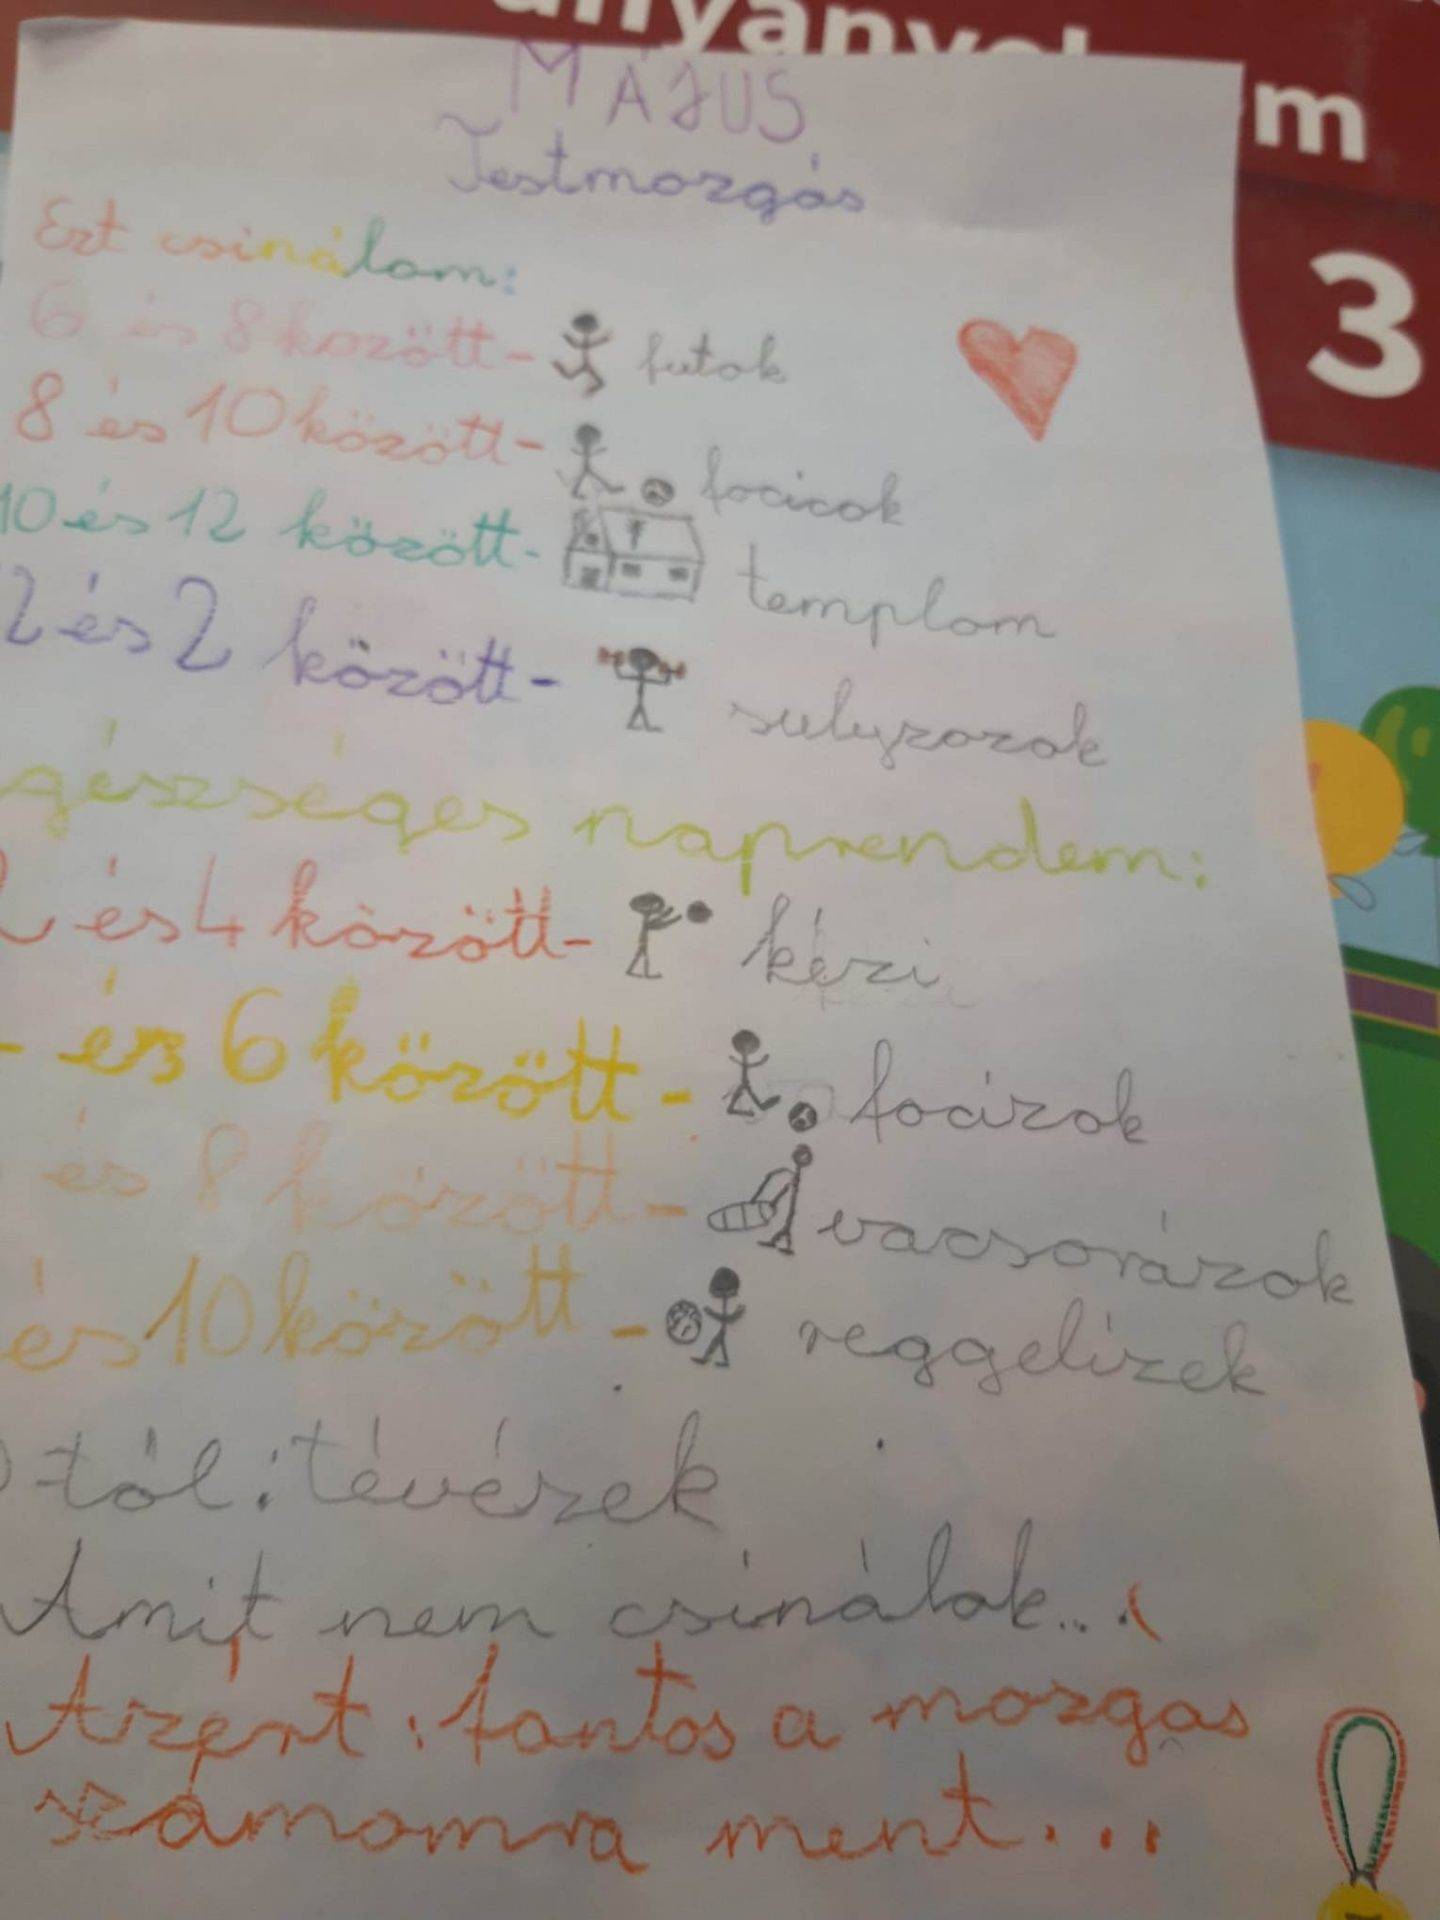 anyanyel m
3
MÁJUS
Testmozgás
Ezt csinálom:
6 és 8 között- futok
8 és 10 között- focizok
10 és 12 között- templom
12 és 2 között- sulyzozok
gészséges naprendem:
2 és 4 között- kézi
és 6 között- focizok
és 8 között- vacsorázok
és 10 között- reggelizek
0-tól: tévézek
Amit nem csinálok...
Azért fontos a mozgás
számomra mert...